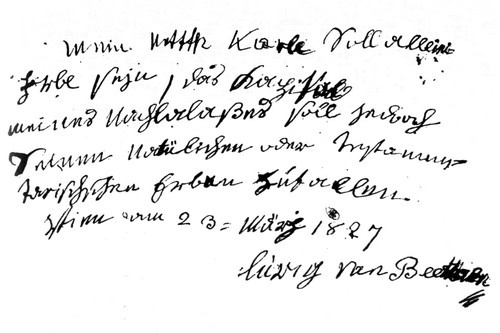 Mein Neffe Karl Soll allein
Erbe seyn, das Kapital
meines Nachlalaßes soll jedoch
Seinen Natülichen oder Testamen-
tarischschen Erben zufallen.
Wien am 23= März 1827
luwig van Beethoven